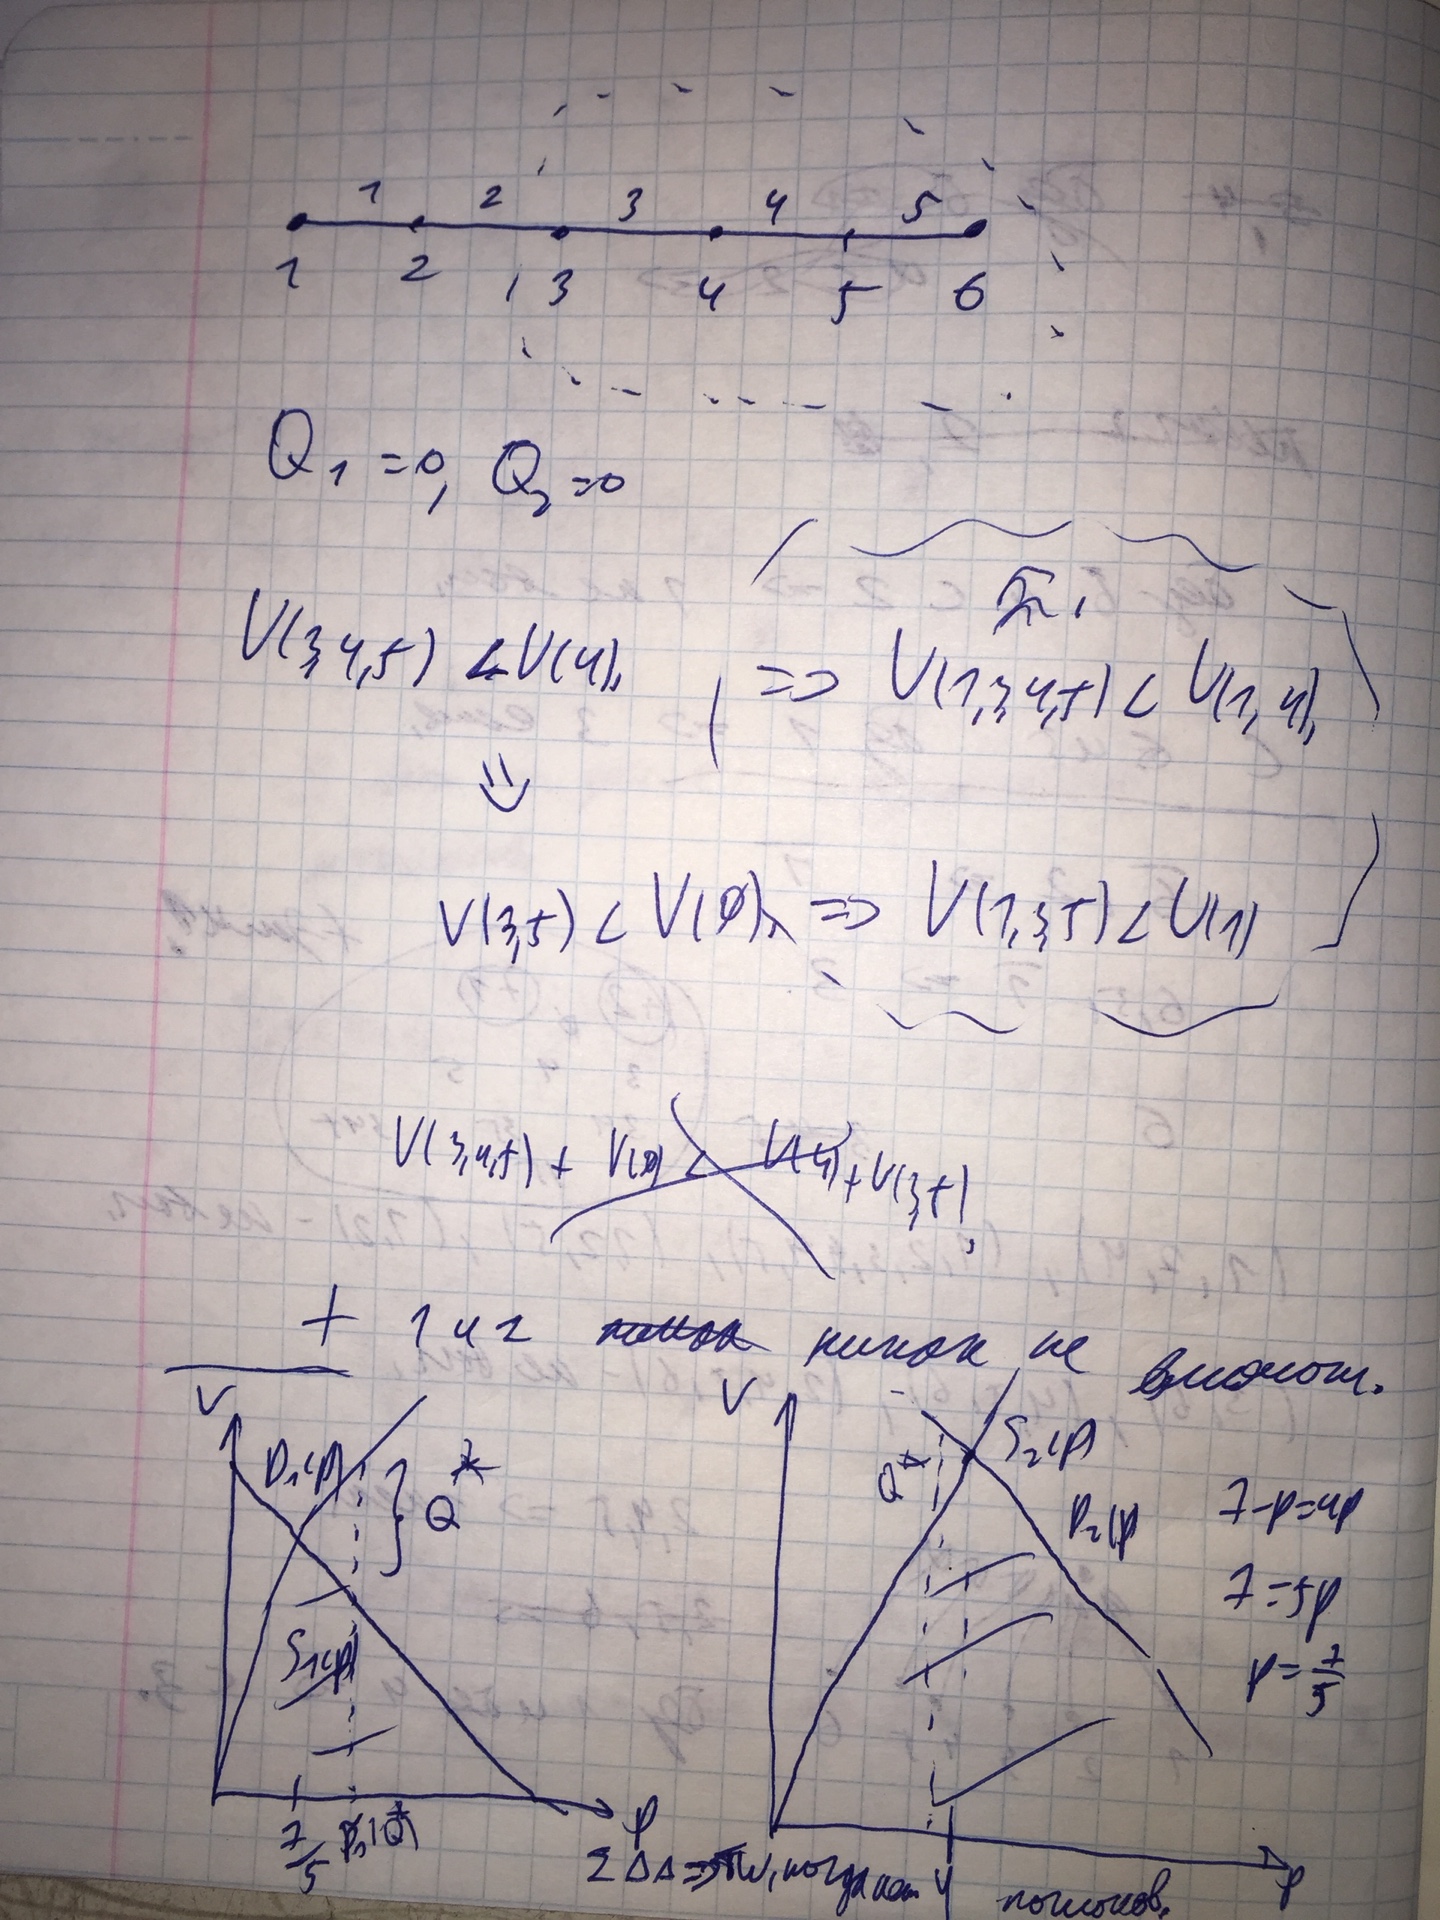 1 2 3 4 5
1 2 3 4 5 6
Q₁ = 0, Q₂ = 0
V(3,4,5) < V(4), => V(1,3,4,5) < V(1,4),
⇓
V(3,5) < V(∅), => V(1,3,5) < V(1)
V(3,4,5) + V(∅) < V(4) + V(3,5)
+ 1 и 2 никак не включают.
V D₁(p) Q* S₁(p) 7/5 p
V Q* S₂(p) D₂(p) 4 p
7-p=4p
7=5p
p=7/5
Σ ΔΔ => когда потоков.